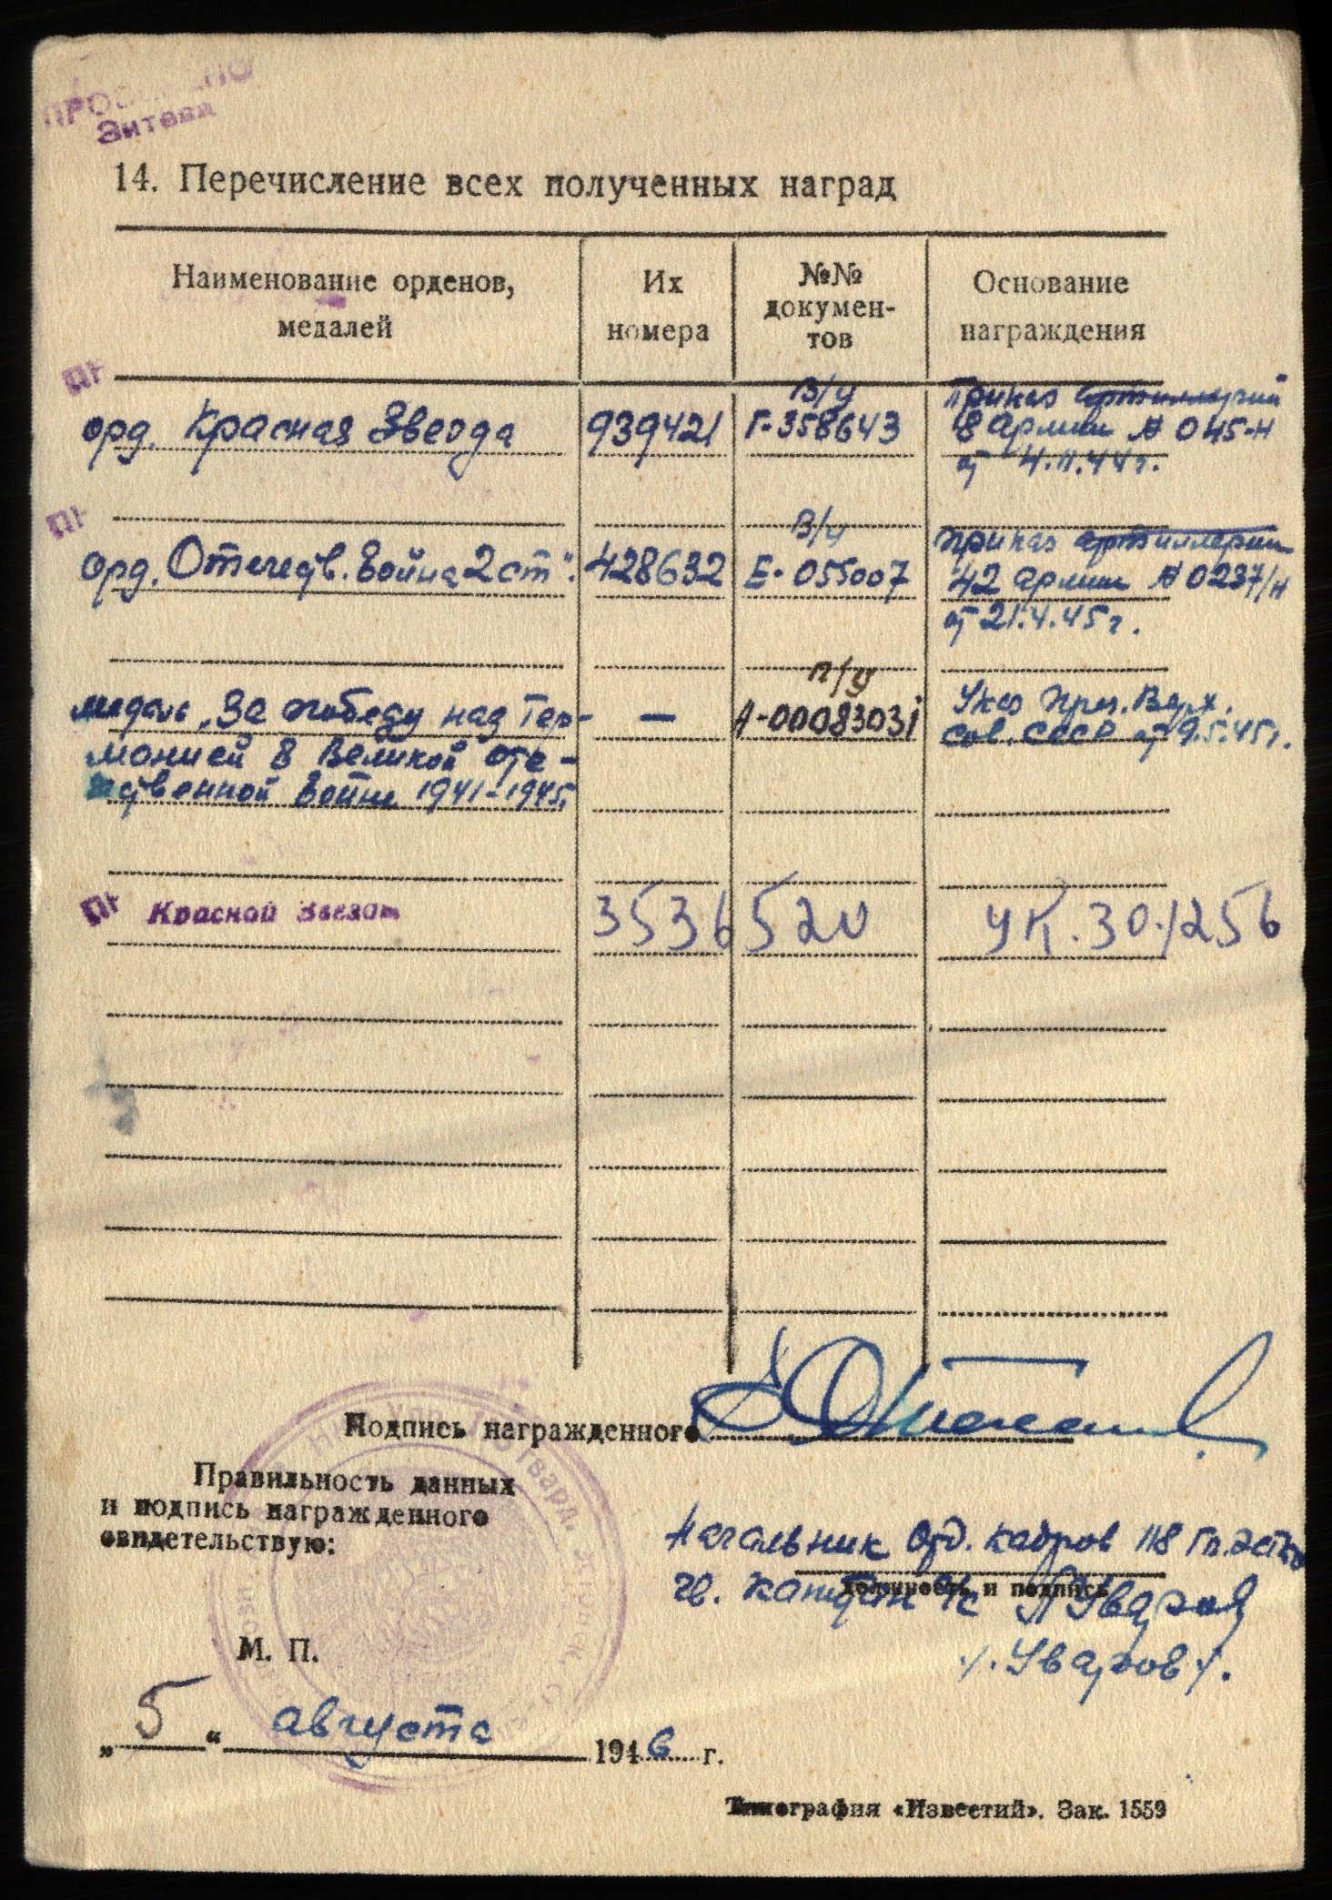 Зитева
14. Перечисление всех полученных наград
Наименование орденов, медалей
Их номера
№№ документов
Основание награждения
ПГ
орд. Красная Звезда
939421
В/у
Г-358643
Приказ артиллерий
8 армии № 045-н
от 4.11.44 г.
ПГ
орд. Отечеств. Война 2 ст".
428632
В/у
Е-055007
Приказ артиллерии
42 армии № 0237/н
от 21.4.45 г.
медаль „За победу над Гер-
манией в Великой оте-
чественной войне 1941-1945г
—
п/у
А-00083031
Указ През. Верх.
Сов. СССР от 9.5.45г.
ПГ
Красной Звезды
3536520
УК. 30.1256
Подпись награжденного
Правильность данных
и подпись награжденного
свидетельствую:
Начальник отд. кадров 118
должность и подпись
гв. капитан
/. Уваров /.
М. П.
„ 5 “ августа 1946 г.
Типография «Известий». Зак. 1559